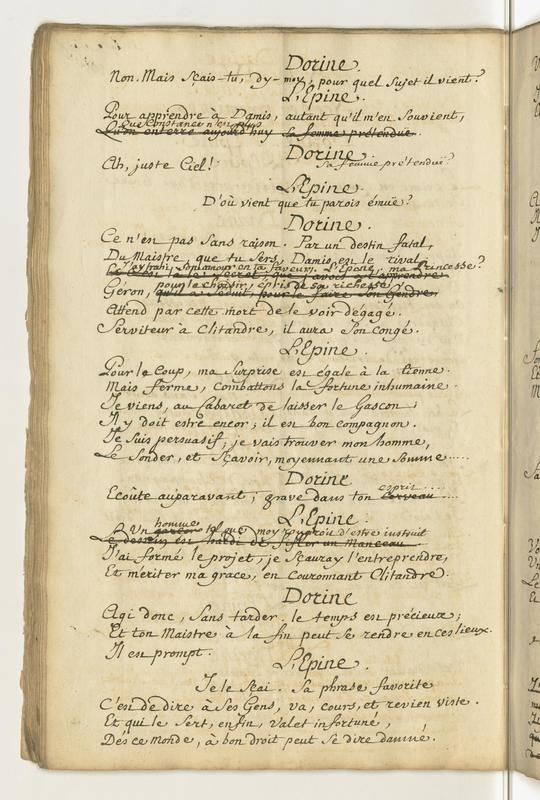 Dorine.
Non. Mais Sçais-tu, dy-moy, pour quel Sujet il vient?
L'Epine.
Pour apprendre à Damis, autant qu'il m'en Souvient,
Que Constance n'en plus
Qu'on enterre aujourd'huy sa femme prétendue.
Dorine
Ah, juste Ciel!
Sa femme prétenduë?
L'Epine.
D'où vient que tu parois émüe?
Dorine.
Ce n'est pas Sans raison. Par un destin fatal,
Du Maistre, que tu Sers, Damis est le rival,
Son amour en ta faveur. L'Epine, ma Princesse?
pour le choisir, épris de sa richesse,
Géron, qu'il a Séduit, pour le faire Son Gendre,
Attend par cette mort de le voir dégagé.
Serviteur à Clitandre, il aura Son congé.
L'Epine.
Pour le Coup, ma Surprise est égale à la tienne.
Mais ferme, Combattons la fortune inhumaine.
Je viens, au Cabaret de laisser le Gascon;
Il y doit estre encor; il est bon compagnon.
Je Suis persuasif; je vais trouver mon homme,
Le Sonder, et Sçavoir, moyennant une Somme.....
Dorine
esprit....
Ecoûte auparavant; grave dans ton Cerveau....
L'Epine.
homme,
Un garçon tel que moy d'estre instruit
Le dessein est hardi de Siffler un Manceau
J'ai formé le projet; je Sçauray l'entreprendre,
Et mériter ma grace, en Couronnant Clitandre.
Dorine
Agi donc, Sans tarder. le temps est précieux;
Et ton Maistre à la fin peut Se rendre en ces lieux.
Il est prompt.
L'Epine.
Je le Sçai. Sa phrase favorite
C'est de dire à Ses Gens, va, cours, et revien viste.
Et qui le Sert, enfin, Valet infortuné,
Dés ce Monde, à bon droit peut Se dire damné!